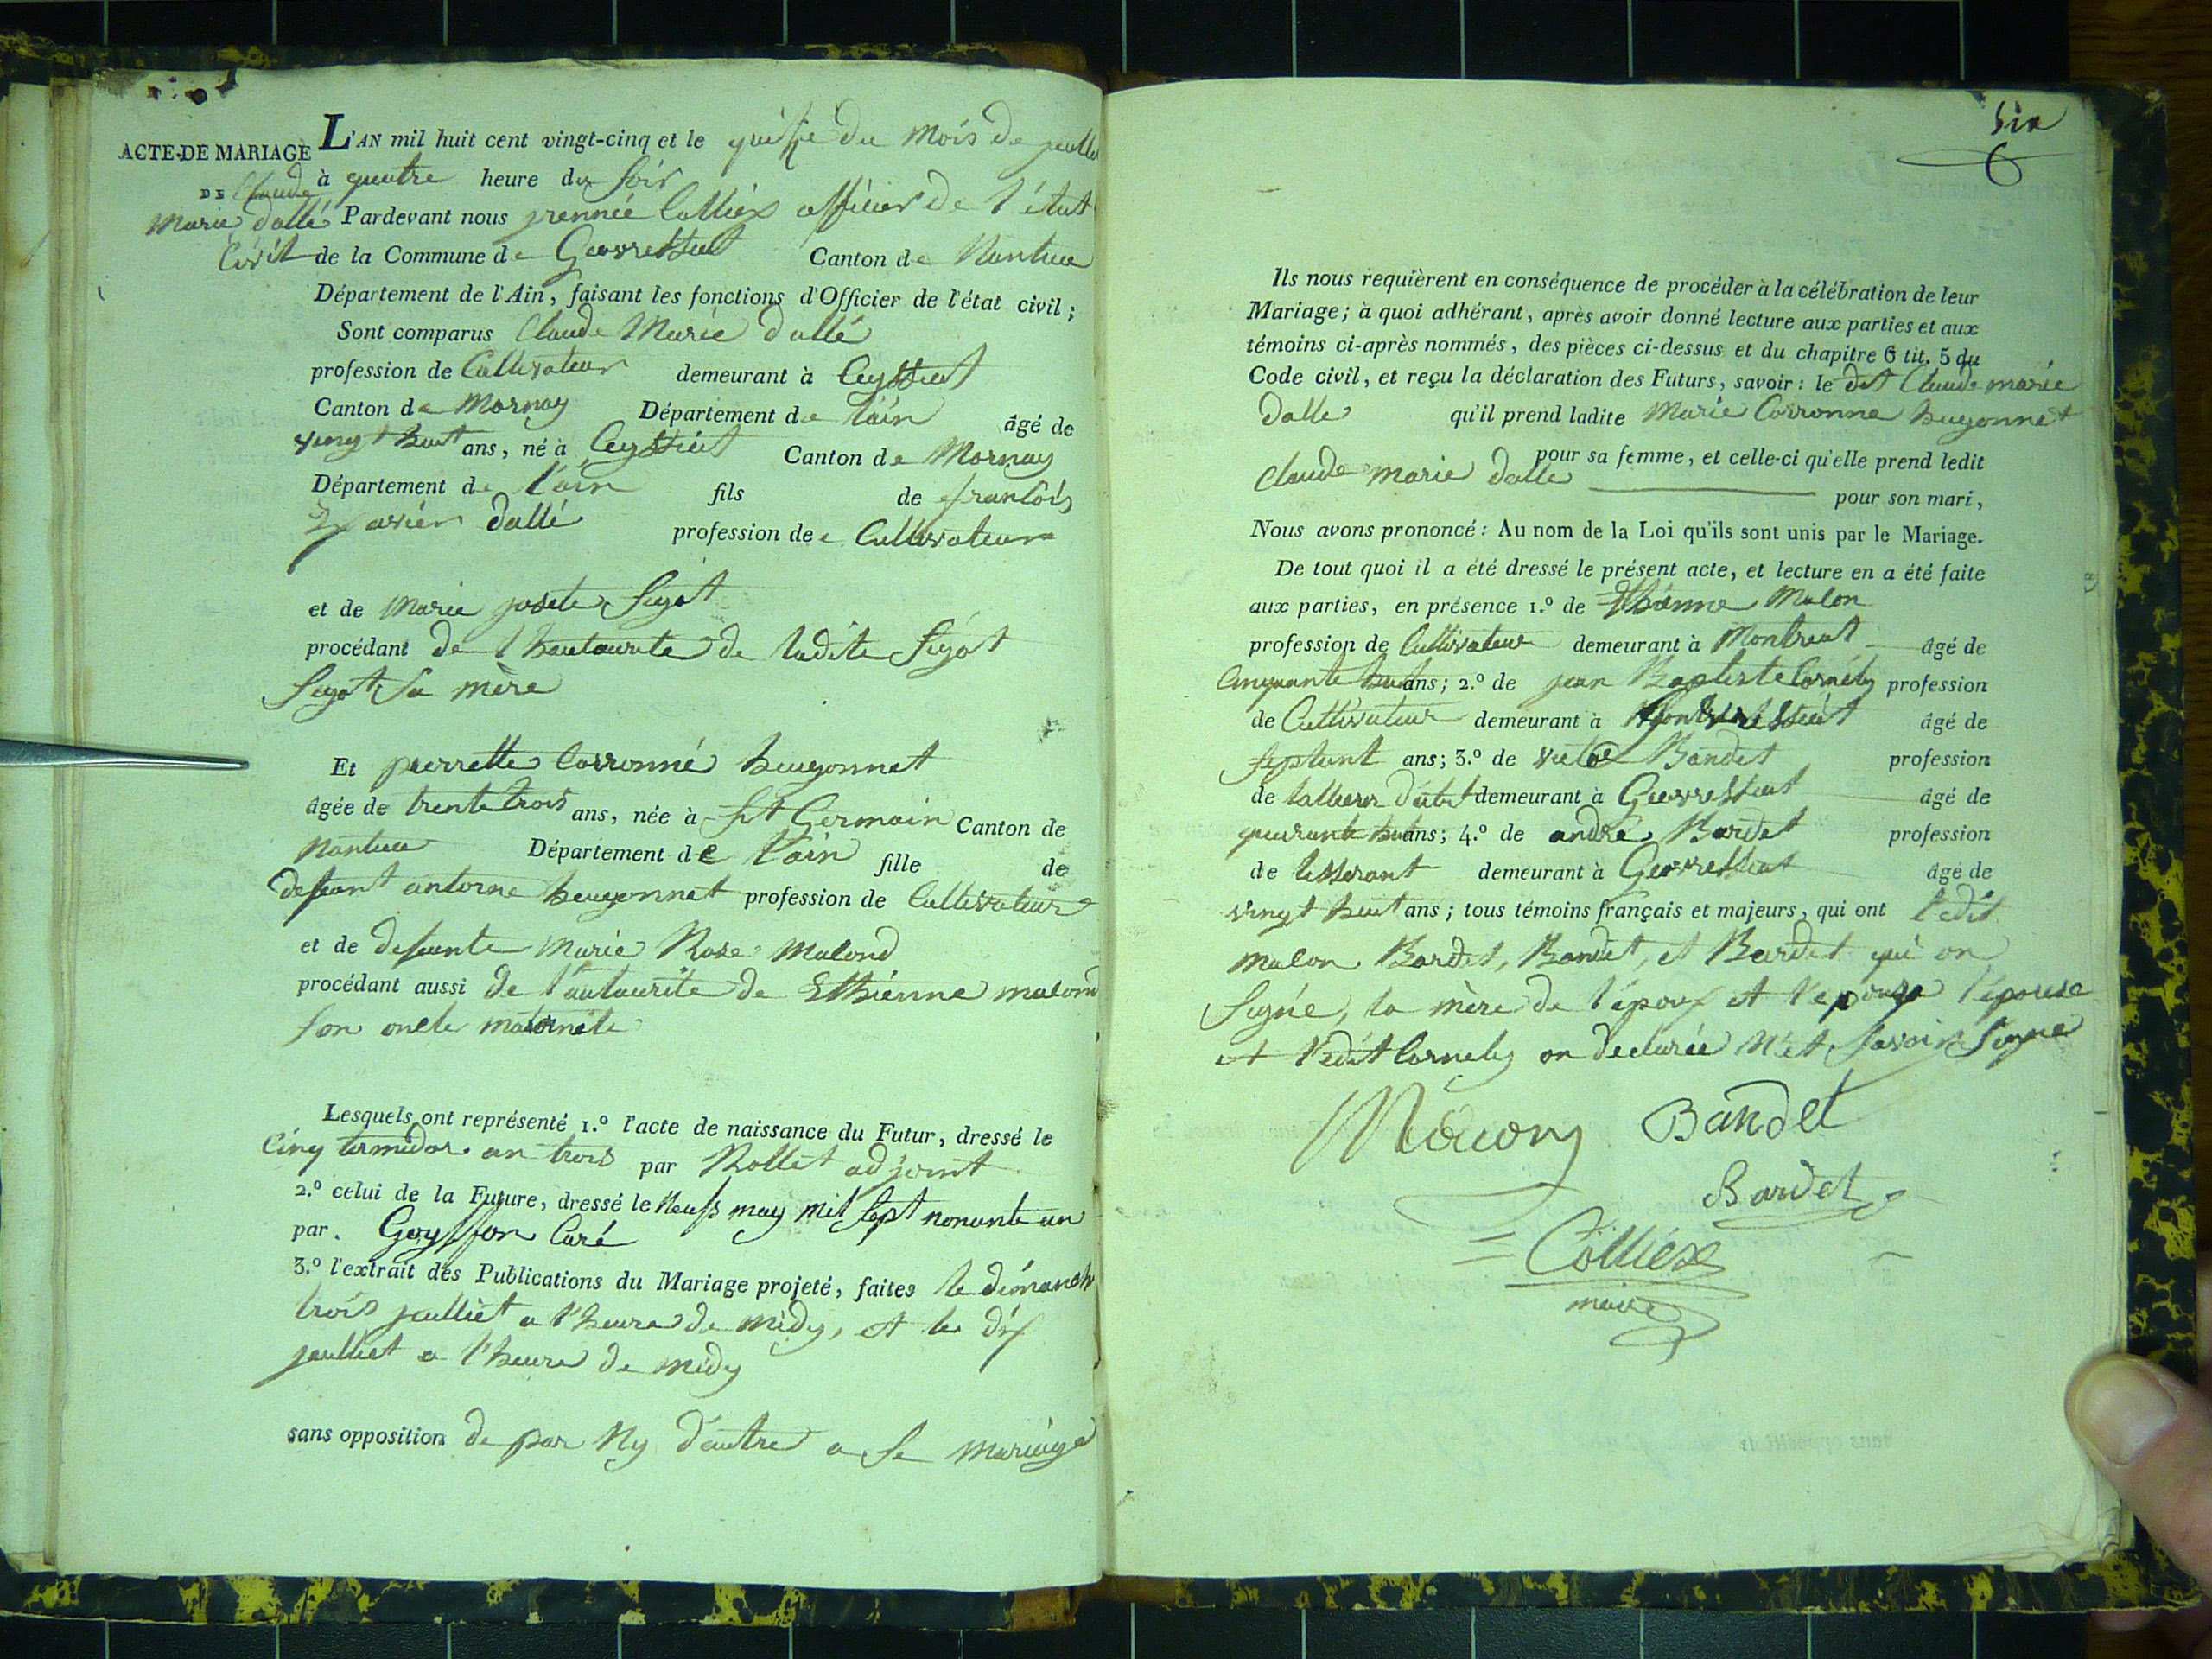 ACTE DE MARIAGE
DE Claude
Marie dallé
L'AN mil huit cent vingt-cinq et le quinze du mois de juillet
à quatre heure du soir
Pardevant nous Colliex officier de l'état
Civil de la Commune de Canton de Nantua
Département de l'Ain, faisant les fonctions d'Officier de l'état civil;
Sont comparus Claude Marie dallé
profession de Cultivateur demeurant à Ceyssiat
Canton de Mornay Département de l'ain âgé de
vingt huit ans, né à Ceyssiat Canton de Mornay
Département de l'ain fils de francois
Xavier dallé profession de Cultivateur
et de Marie josete Sigot
procédant de l'hautaurité de ladite Sigot
Sigot sa mère
Et pierrette Corronné huygonnet
âgée de trente trois ans, née à St Germain Canton de
Nantua Département de l'ain fille de
defeunt antoine heugonnet profession de Cultivateur
et de defeunte Marie Rose Malond
procédant aussi de l'autaurité de Ethienne malond
son oncle maternele
Lesquels ont représenté 1.º l'acte de naissance du Futur, dressé le
Cinq termidor an trois par Rollet adjoint
2.º celui de la Future, dressé le Neufs may mil sept nonante un
par. Goyffon Curé
3.º l'extrait des Publications du Mariage projeté, faites le dimanche
trois juilliet a l'heure de midy, et le dix
juilliet a l'heure de midy
sans opposition de par Ny d'autre a se mariage
Six
6
Ils nous requièrent en conséquence de procéder à la célébration de leur
Mariage; à quoi adhérant, après avoir donné lecture aux parties et aux
témoins ci-après nommés, des pièces ci-dessus et du chapitre 6 tit. 5 du
Code civil, et reçu la déclaration des Futurs, savoir: le dit Claude marie
dalle qu'il prend ladite Marie Corronne huygonnet
pour sa femme, et celle-ci qu'elle prend ledit
Claude marie dalle pour son mari,
Nous avons prononcé: Au nom de la Loi qu'ils sont unis par le Mariage.
De tout quoi il a été dressé le présent acte, et lecture en a été faite
aux parties, en présence 1.º de Ethienne Malon
profession de Cultivateur demeurant à Montreat âgé de
Cinquante huit ans; 2.º de jean Baptiste Cornély profession
de Cultivateur demeurant à âgé de
septant ans; 3.º de victor Bandet profession
de demeurant à Gevressiat âgé de
quarante huit ans; 4.º de andré Bardet profession
de tesserant demeurant à Gevressiat âgé de
vingt huit ans; tous témoins français et majeurs, qui ont l'edit
malon Bardet, Bandet, et Bardet qui on
Signé, la mère de l'époux et l'epouze l'épouse
et l'edit Cornely on declarée N'et savoir Signe
Bandet
Bardet
Colliex
maire